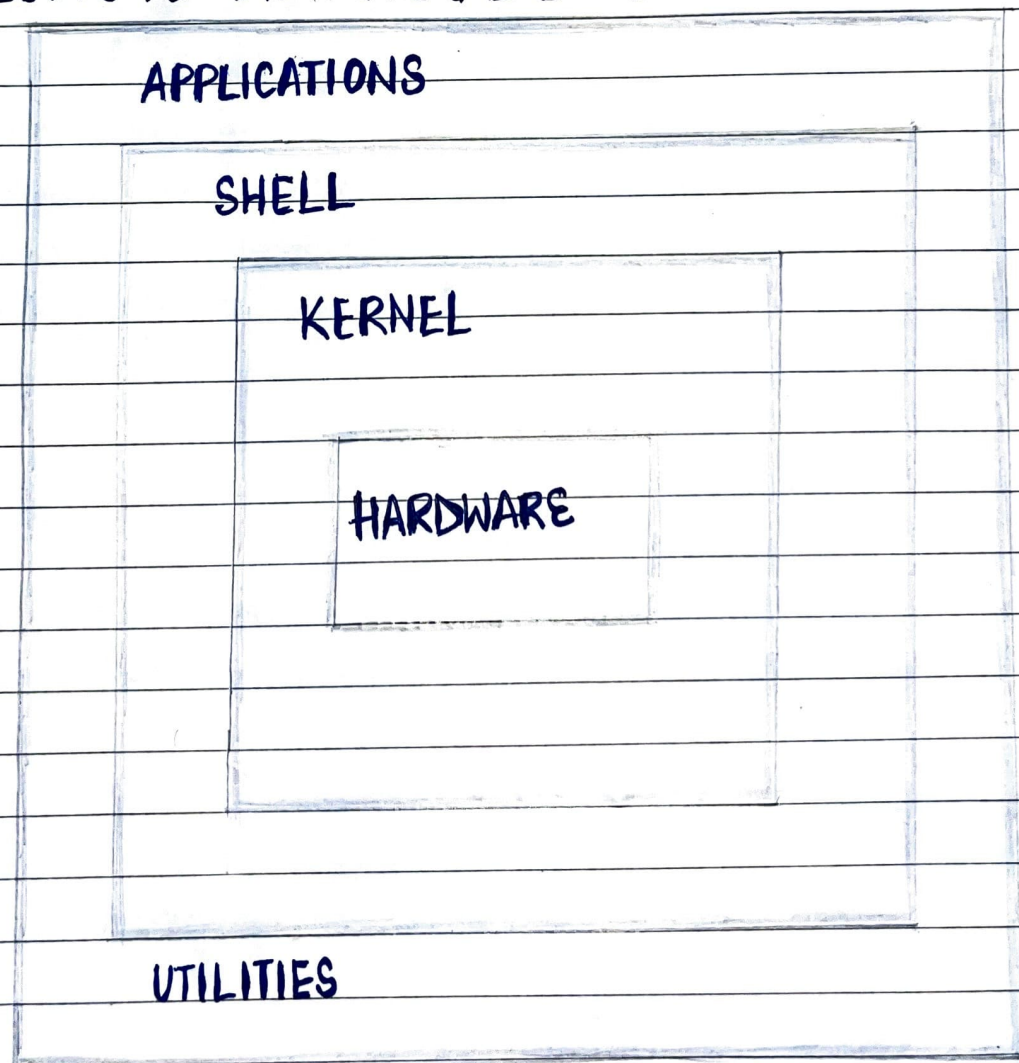 APPLICATIONS
SHELL
KERNEL
HARDWARE
UTILITIES